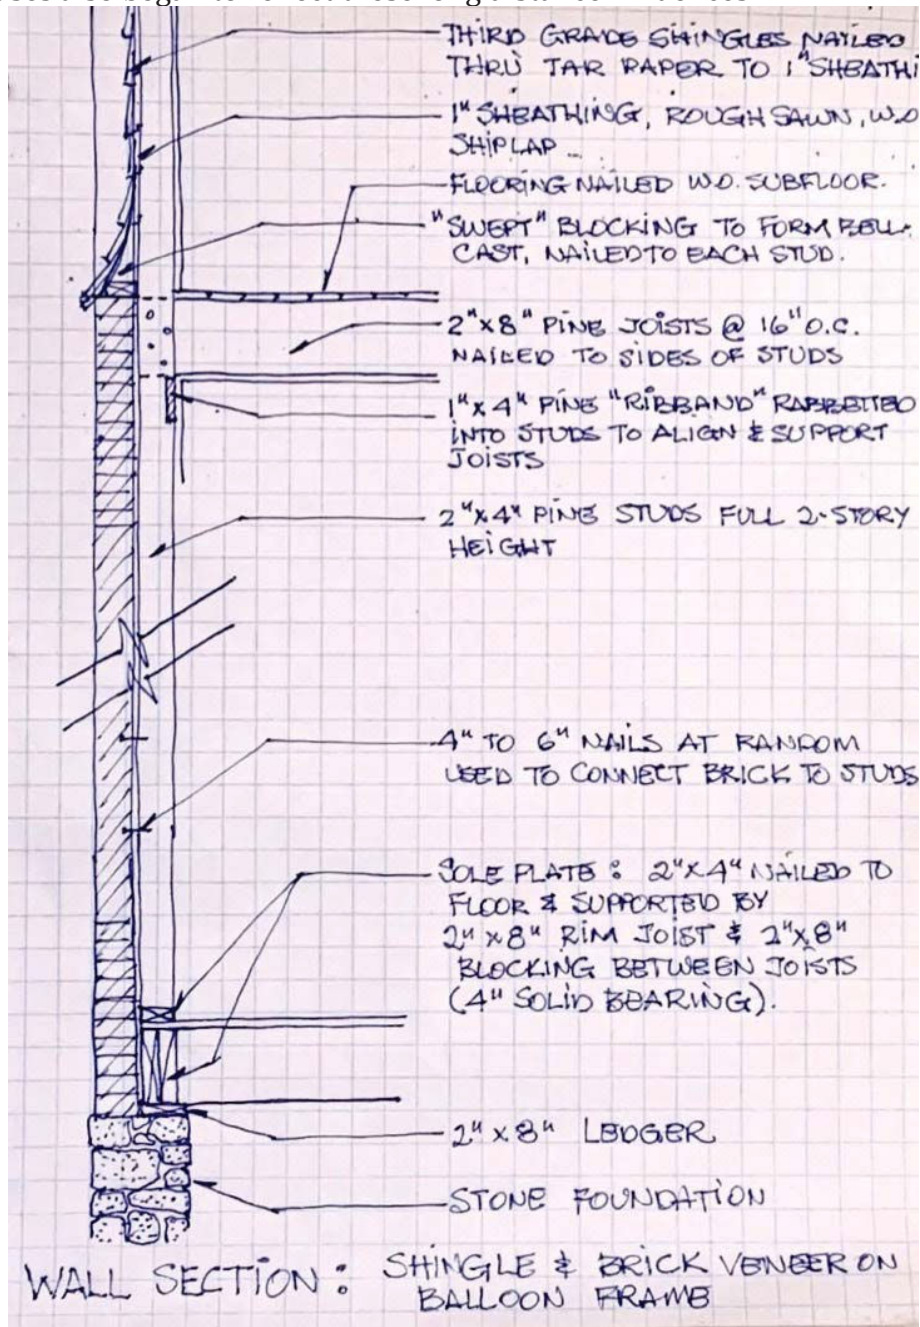 THIRD GRADE SHINGLES NAILED
THRU TAR PAPER TO 1" SHEATHI
1" SHEATHING, ROUGH SAWN, W.O
SHIPLAP
FLOORING NAILED W.O. SUBFLOOR.
"SWEPT" BLOCKING TO FORM BELL-
CAST, NAILED TO EACH STUD.
2"x8" PINE JOISTS @ 16" O.C.
NAILED TO SIDES OF STUDS
1"x4" PINE "RIBBAND" RABBETTED
INTO STUDS TO ALIGN & SUPPORT
JOISTS
2"x4" PINE STUDS FULL 2-STORY
HEIGHT
4" TO 6" NAILS AT RANDOM
USED TO CONNECT BRICK TO STUDS
SOLE PLATE: 2"x4" NAILED TO
FLOOR & SUPPORTED BY
2"x8" RIM JOIST & 2"x8"
BLOCKING BETWEEN JOISTS
(4" SOLID BEARING).
2"x8" LEDGER
STONE FOUNDATION
WALL SECTION: SHINGLE & BRICK VENEER ON
BALLOON FRAME